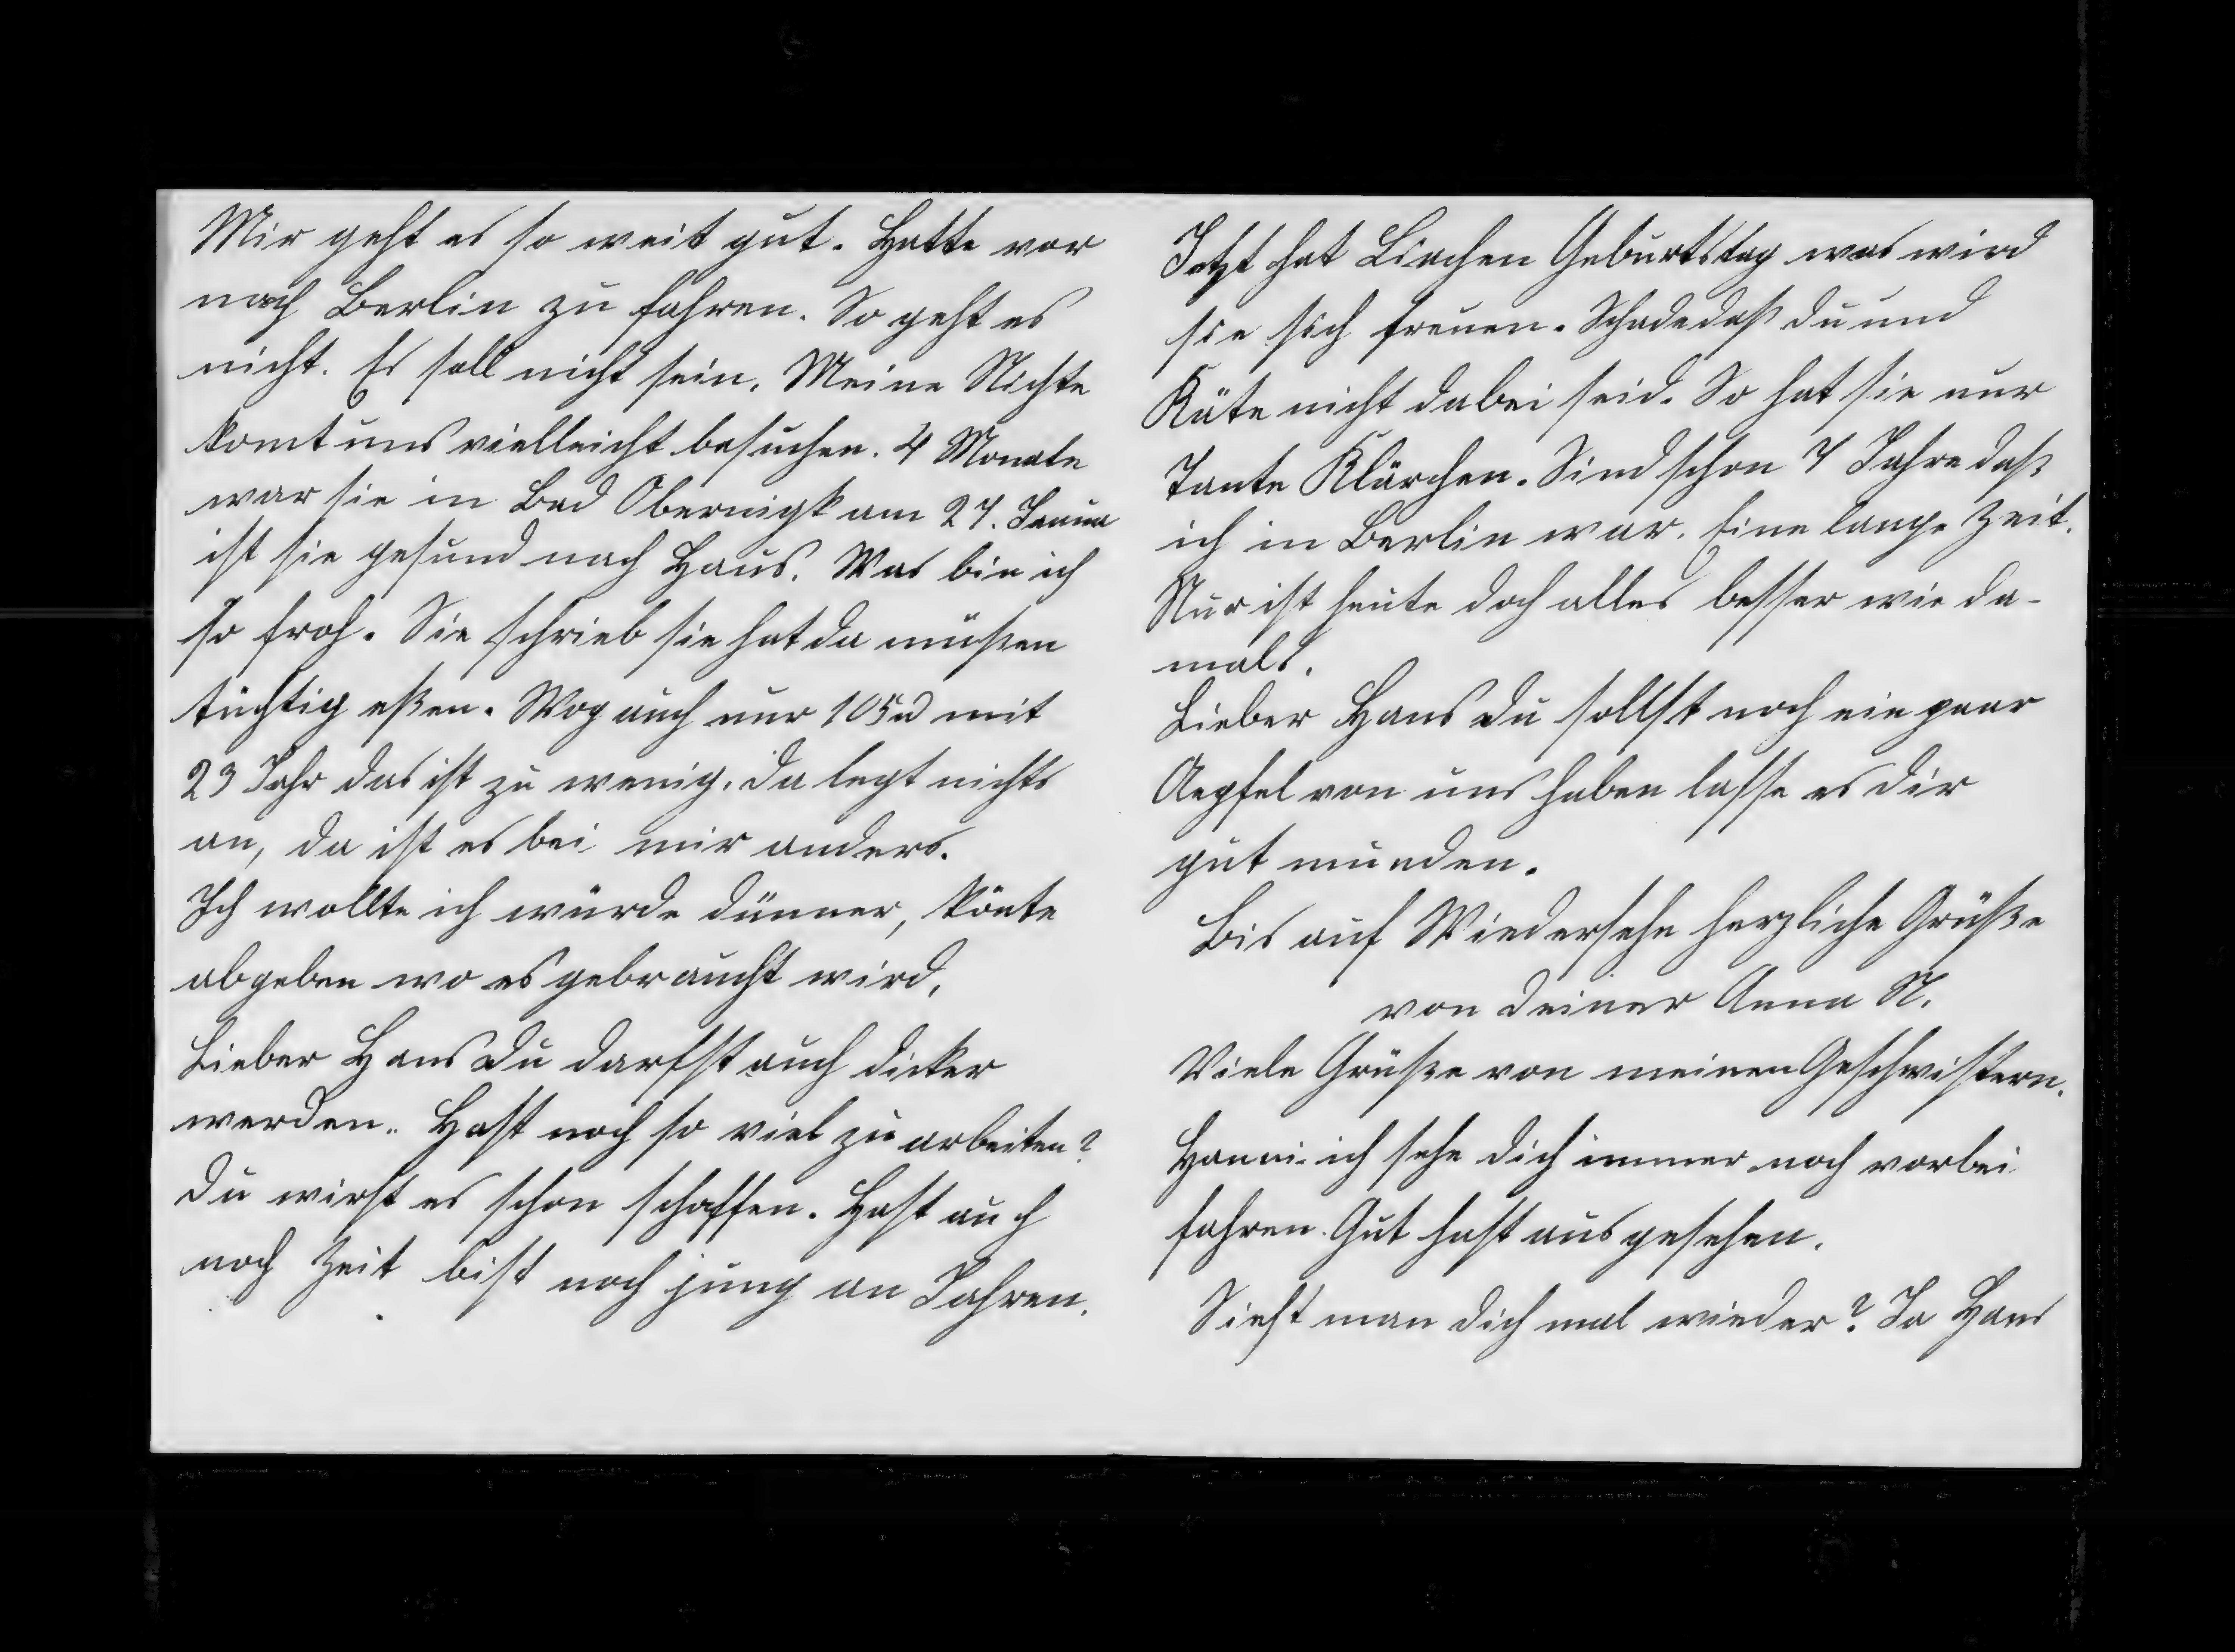 Mir geht es so weit gut. Hatte vor
nach Berlin zu fahren. So geht es
nicht. Es soll nicht sein. Meine Nichte
komt uns vielleicht besuchen. 4 Monate
war sie in Bad Obernigk am 27. Janua
ist sie gesund nach Haus. Was bin ich
so froh. Sie schrieb sie hat da müßen
tüchtig eßen. Wog auch nur 105 mit
23 Jahr das ist zu wenig. Da legt nichts
an, da ist es bei mir anders.
Ich wollte ich würde dünner, könte
abgeben wo es gebraucht wird.
Lieber Hans du darfst auch dicker
werden. Hast noch so viel zu arbeiten?
Du wirst es schon schaffen. Hast auch
noch Zeit bist noch jung an Jahren.
Jetzt hat Lischen Geburtstag was wird
sie sich freuen. Schade daß du und
Käte nicht dabei seid. So hat sie nur
Tante Klärchen. Sind schon 7 Jahre daß
ich in Berlin war. Eine lange Zeit.
Nur ist heute doch alles besser wie da-
mals.
Lieber Hans du sollst noch ein paar
Aepfel von uns haben lasse es dir
gut munden.
Bis auf Wiedersehn herzliche Grüße
von deiner Anna N.
Viele Grüße von meinen Geschwistern.
Hanni ich sehe dich immer noch vorbei
fahren. Gut hast ausgesehen.
Sieht man dich mal wieder? Ja Hans